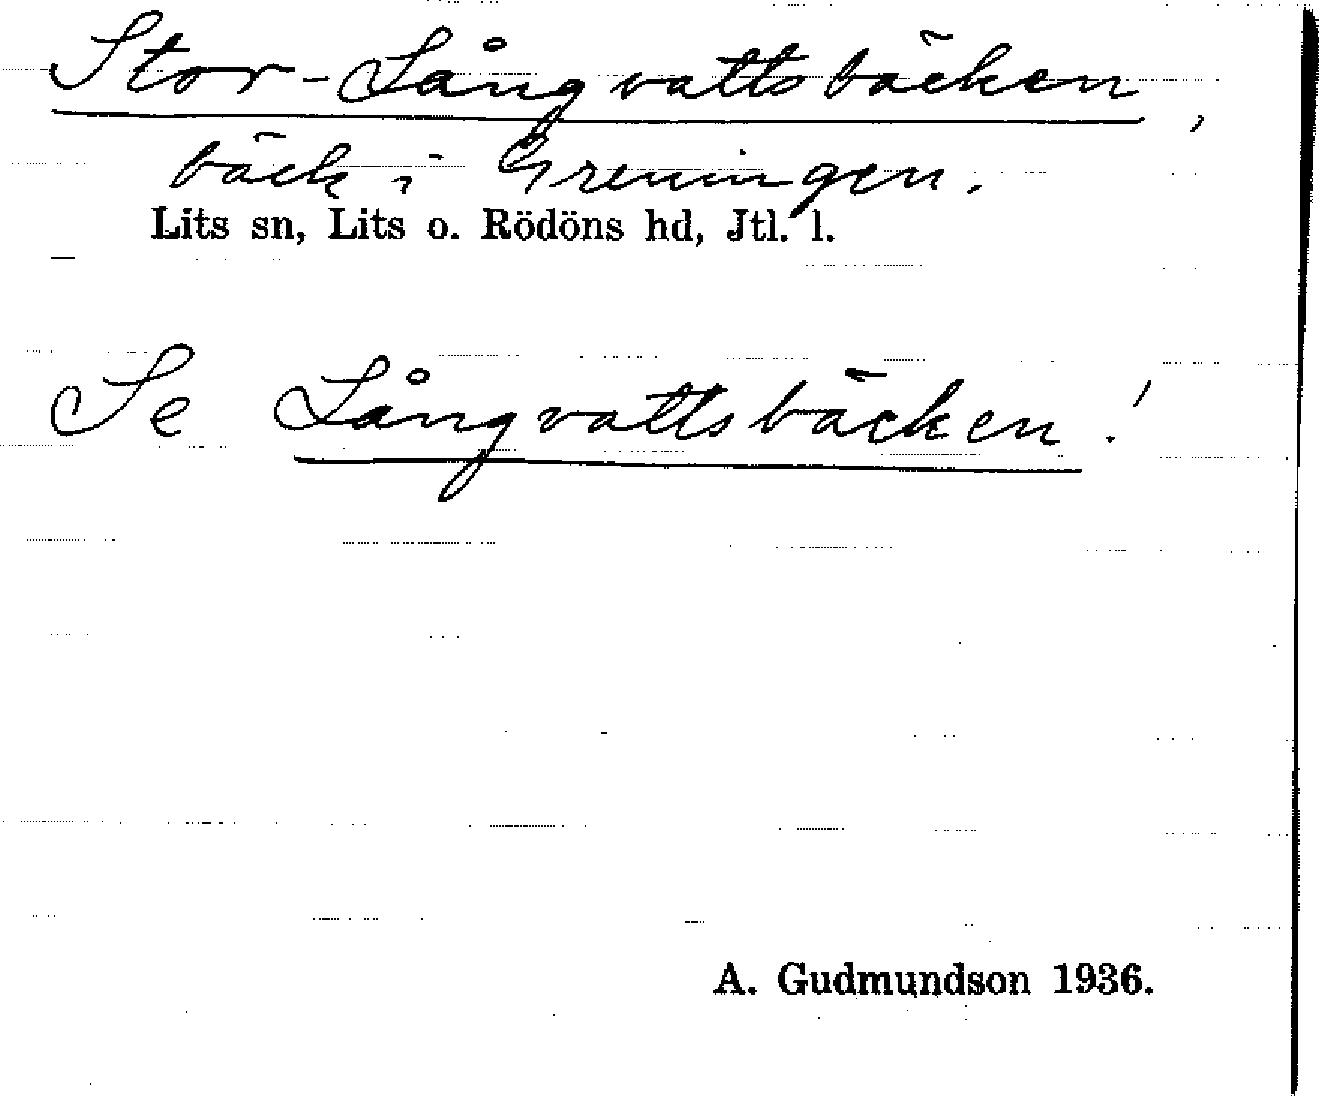 Stor-Långvattsbäcken,
bäck i Greningen.
Lits sn, Lits o. Rödöns hd, Jtl. l.
Se Långvattsbäcken!
A. Gudmundson 1936.